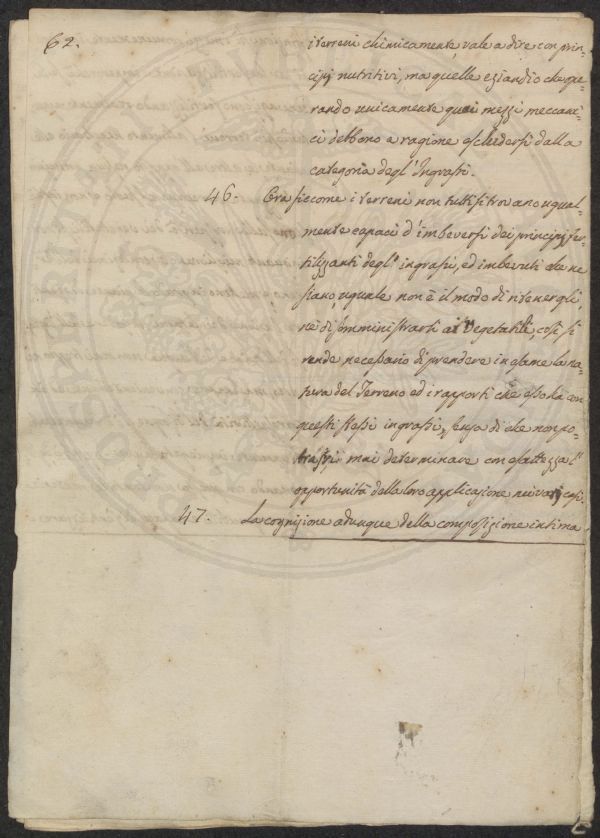 62.
i terreni chimicamente, vale a dire con prin-
cipj nutritivi, ma quelle eziandio che ope-
rando unicamente quai mezzi meccani-
ci debbono a ragione escludersi dalla
categoria degl' Ingrassi.
46. Ora siccome i terreni non tutti si trovano ugual-
mente capaci d'imbeversi dei principj fer-
tilizzanti degl' ingrassi, ed imbevuti che ne
siano, uguale non è il modo di ritenergli,
nè di somministrarli ai Vegetabili, così si
rende necessario di prendere in esame la na-
tura del Terreno ed i rapporti che esso ha con
questi stessi ingrassi, senza di che non po-
trassi mai determinare con esattezza l'
opportunità della loro applicazione nei varj casi.
47. La cognizione adunque della composizione intima